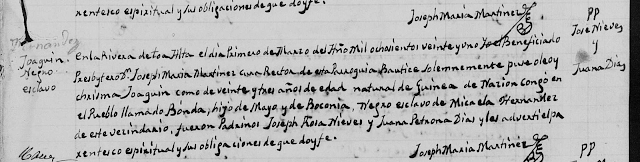 rentesco espiritual y sus obligaciones de que doy fe.
Joseph Maria Martinez
Joaquin
Negro
esclavo
En la Rivera de Toa Alta el dia Primero de Marzo del Año mil ochosientos veinte y uno Yo el Beneficiado
Presbytero Dn. Joseph Maria Martinez cura Rector de esta Parroquia Bautice solemnemente puse oleo y
chrisma Joaquin como de veinte y tres años de edad natural de Guinea de Nazion Congo en
el Pueblo llamado Bonda, hijo de Mayo y de Boconia, Negro esclavo de Micaela Hernandez
de este vecindario, fueron Padrinos Joseph Rosa Nieves y Juana Petrona Dias y les adverti el pa
rentesco espiritual y sus obligaciones de que doy fe.
Joseph Maria Martinez
PP
Jose Nieves
y
Juana Dias
PP